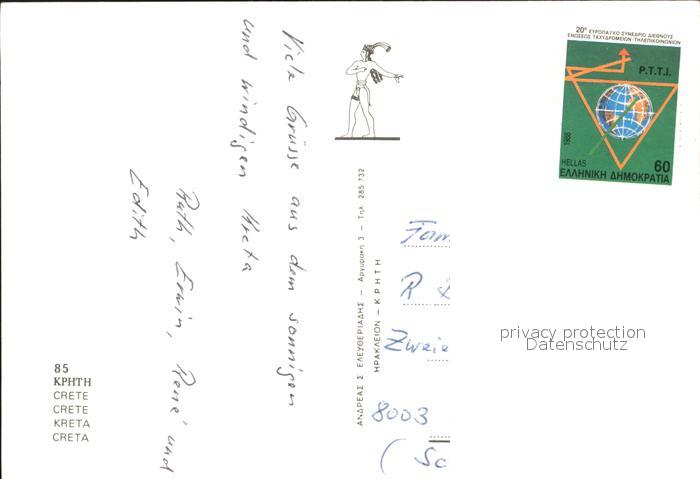 Viele Grüsse aus dem sonnigen
und windigen Kreta
Ruth, Erwin, René und
Edith
85
ΚΡΗΤΗ
CRETE
CRETE
KRETA
CRETA
ΑΝΔΡΕΑΣ Σ. ΕΛΕΥΘΕΡΙΑΔΗΣ – Αργυρακη 3 – Τηλ. 285 732
ΗΡΑΚΛΕΙΟΝ – ΚΡΗΤΗ
20ο ΕΥΡΩΠΑΥΚΟ ΣΥΝΕΔΡΙΟ ΔΙΕΘΝΟΥΣ
ΕΝΩΣΕΩΣ ΤΑΧΥΔΡΟΜΕΙΩΝ-ΤΗΛΕΠΙΚΟΙΝΩΝΙΩΝ
P.T.T.I.
1988
HELLAS
60
ΕΛΛΗΝΙΚΗ ΔΗΜΟΚΡΑΤΙΑ
Fam
R
Zweie
8003
(Sc
privacy protection
Datenschutz